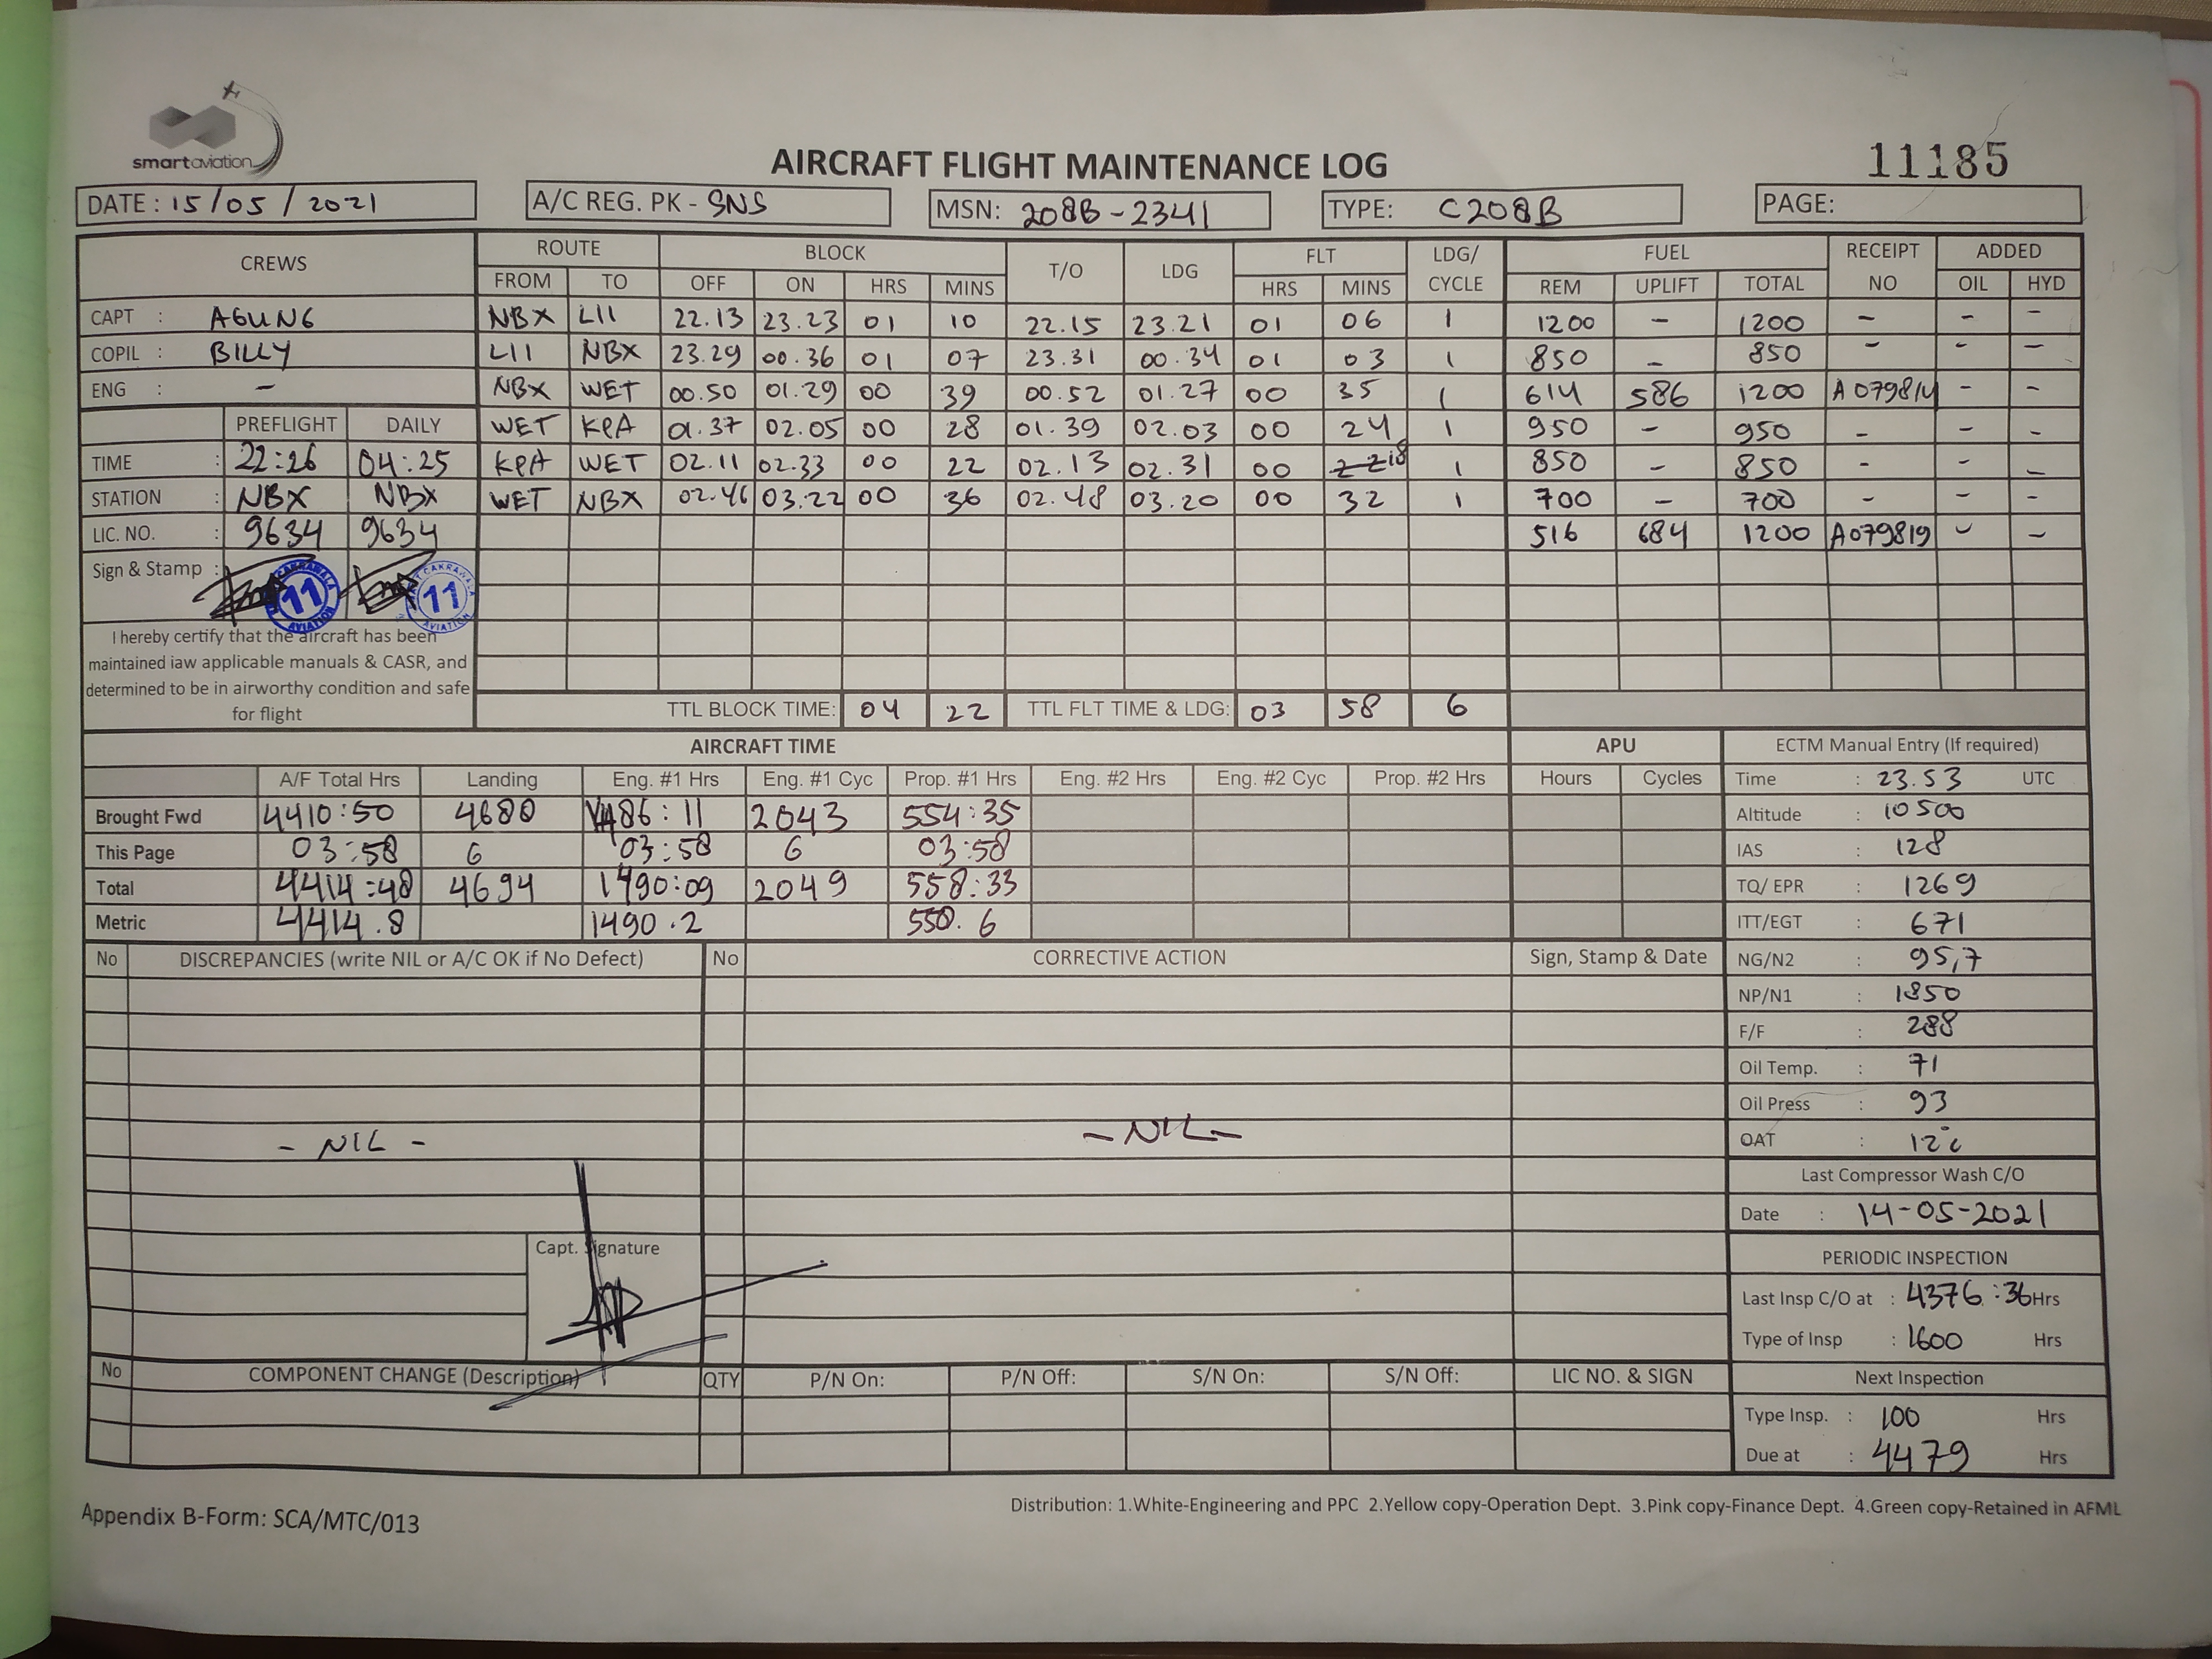 smartaviation
AIRCRAFT FLIGHT MAINTENANCE LOG
11185
DATE : 15/05/2021 A/C REG. PK - SNS MSN: 208B-2341 TYPE: C208B PAGE:
CREWS ROUTE BLOCK T/O LDG FLT LDG/ CYCLE FUEL RECEIPT NO ADDED
FROM TO OFF ON HRS MINS HRS MINS REM UPLIFT TOTAL OIL HYD
CAPT : AGUNG NBX LII 22.13 23.23 01 10 22.15 23.21 01 06 1 1200 - 1200 - - -
COPIL : BILLY LII NBX 23.29 00.36 01 07 23.31 00.34 01 03 1 850 - 850 - - -
ENG : - NBX WET 00.50 01.29 00 39 00.52 01.27 00 35 1 614 586 1200 A079814 - -
PREFLIGHT DAILY WET KPA 01.37 02.05 00 28 01.39 02.03 00 24 1 950 - 950 - - -
TIME : 22:26 04:25 KPA WET 02.11 02.33 00 22 02.13 02.31 00 18 1 850 - 850 - - -
STATION : NBX NBX WET NBX 02.46 03.22 00 36 02.48 03.20 00 32 1 700 - 700 - - -
LIC. NO. : 9634 9634 516 684 1200 A079819 - -
Sign & Stamp :
CAKRAWALA 11 AVIATION CAKRAWALA 11 AVIATION
I hereby certify that the aircraft has been
maintained iaw applicable manuals & CASR, and
determined to be in airworthy condition and safe
for flight
TTL BLOCK TIME: 04 22 TTL FLT TIME & LDG: 03 58 6
AIRCRAFT TIME APU ECTM Manual Entry (If required)
A/F Total Hrs Landing Eng. #1 Hrs Eng. #1 Cyc Prop. #1 Hrs Eng. #2 Hrs Eng. #2 Cyc Prop. #2 Hrs Hours Cycles Time : 23.53 UTC
Brought Fwd 4410:50 4680 1486:11 2043 554:35 Altitude : 10500
This Page 03:58 6 03:58 6 03:58 IAS : 128
Total 4414:48 4694 1490:09 2049 558:33 TQ/ EPR : 1269
Metric 4414.8 1490.2 550.6 ITT/EGT : 671
No DISCREPANCIES (write NIL or A/C OK if No Defect) No CORRECTIVE ACTION Sign, Stamp & Date NG/N2 : 95,7
NP/N1 : 1850
F/F : 288
Oil Temp. : 71
Oil Press : 93
- NIL - - NIL - OAT : 12°c
Last Compressor Wash C/O
Date : 14-05-2021
Capt. Signature PERIODIC INSPECTION
Last Insp C/O at : 4376:36 Hrs
Type of Insp : 1600 Hrs
No COMPONENT CHANGE (Description) QTY P/N On: P/N Off: S/N On: S/N Off: LIC NO. & SIGN Next Inspection
Type Insp. : 100 Hrs
Due at : 4479 Hrs
Appendix B-Form: SCA/MTC/013 Distribution: 1.White-Engineering and PPC 2.Yellow copy-Operation Dept. 3.Pink copy-Finance Dept. 4.Green copy-Retained in AFML